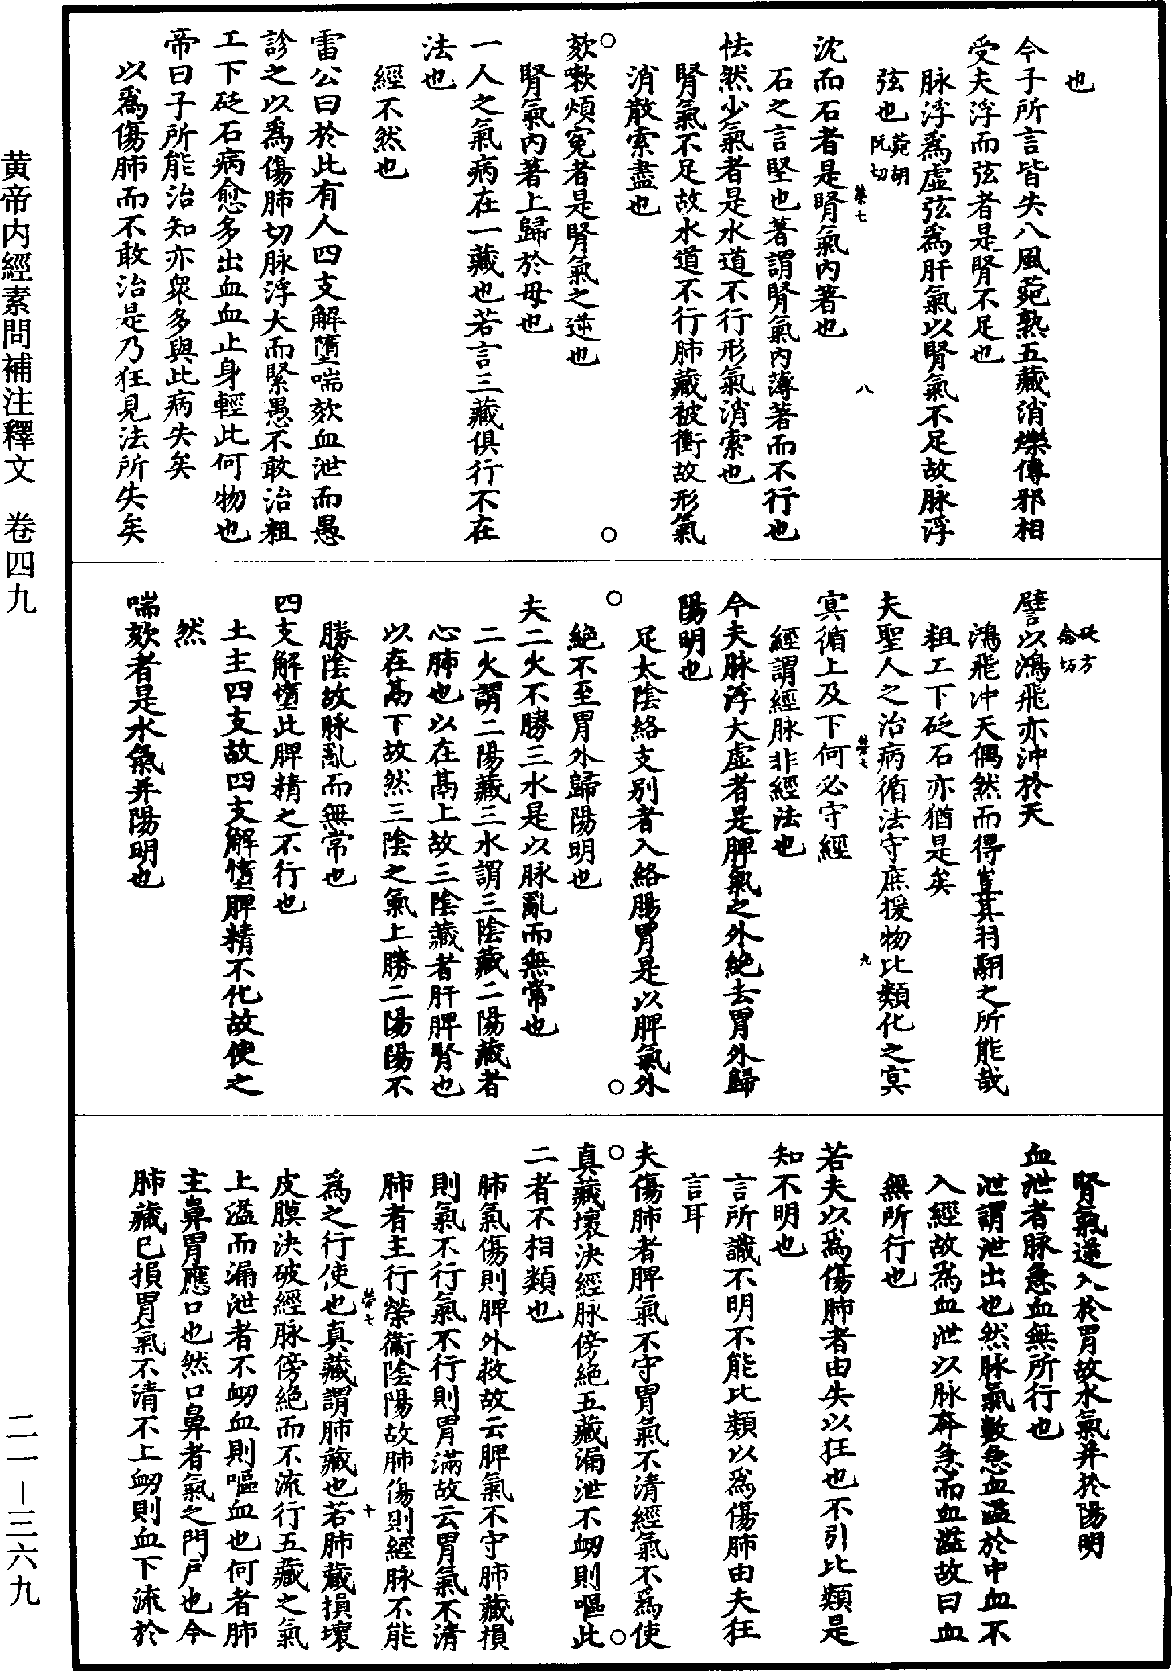 也
今子所言皆失八風菀熟五藏消爍傳邪相
受夫浮而弦者是腎不足也
脉浮爲虛弦爲肝氣以腎氣不足故脉浮
弦也菀胡阮切
沈而石者是腎氣內著也
石之言堅也著謂腎氣內薄著而不行也
怯然少氣者是水道不行形氣消索也
腎氣不足故水道不行肺藏被衝故形氣
消散索盡也
欬嗽煩寃者是腎氣之逆也
腎氣內著上歸於母也
一人之氣病在一藏也若言三藏俱行不在
法也
經不然也
雷公曰於此有人四支解墮喘欬血泄而愚
診之以爲傷肺切脉浮大而緊愚不敢治粗
工下砭石病愈多出血血止身輕此何物也
帝曰子所能治知亦衆多與此病失矣
以爲傷肺而不敢治是乃狂見法所失矣
砭方念切
譬以鴻飛亦沖於天
鴻飛沖天偶然而得豈其羽翮之所能哉
粗工下砭石亦猶是矣
夫聖人之治病循法守度援物比類化之冥
冥循上及下何必守經
經謂經脉非經法也
今夫脉浮大虛者是脾氣之外絶去胃外歸
陽明也
足太陰絡支別者入絡腸胃是以脾氣外
絶不至胃外歸陽明也
夫二火不勝三水是以脉亂而無常也
二火謂二陽藏三水謂三陰藏二陽藏者
心肺也以在髙上故三陰藏者肝脾腎也
以在髙下故然三陰之氣上勝二陽陽不
勝陰故脉亂而無常也
四支解墮此脾精之不行也
土主四支故四支解墮脾精不化故使之
然
喘欬者是水氣并陽明也
腎氣逆入於胃故水氣并於陽明
血泄者脉急血無所行也
泄謂泄出也然脉氣數急血溢於中血不
入經故爲血泄以脉奔急而血溢故曰血
無所行也
若夫以爲傷肺者由失以狂也不引比類是
知不明也
言所識不明不能比類以爲傷肺由夫狂
言耳
夫傷肺者脾氣不守胃氣不清經氣不爲使
真藏壞決經脉傍絶五藏漏泄不衂則嘔此
二者不相類也
肺氣傷則脾外救故云脾氣不守肺藏損
則氣不行氣不行則胃滿故云胃氣不清
肺者主行榮衞陰陽故肺傷則經脉不能
爲之行使也真藏謂肺藏也若肺藏損壞
皮膜決破經脉傍絶而不流行五藏之氣
上溢而漏泄者不衂血則嘔血也何者肺
主鼻胃應口也然口鼻者氣之門戶也今
肺藏已損胃氣不清不上衂則血下流於
黄帝內經素問補注釋文　卷四九
二一－三六九